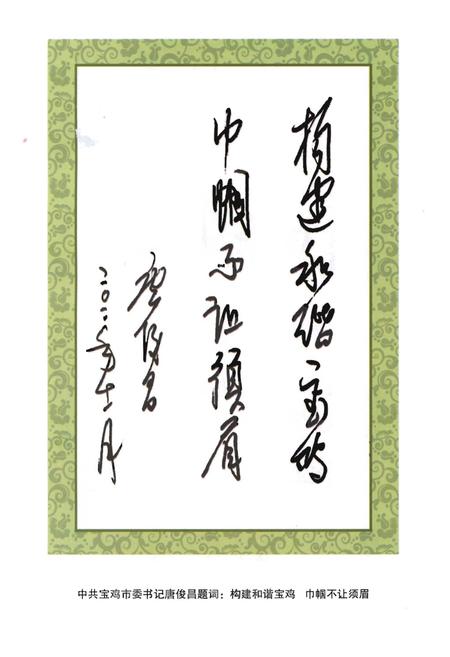 构建和谐宝鸡
巾帼不让须眉
唐俊昌
二〇一〇年十二月
中共宝鸡市委书记唐俊昌题词：构建和谐宝鸡　巾帼不让须眉